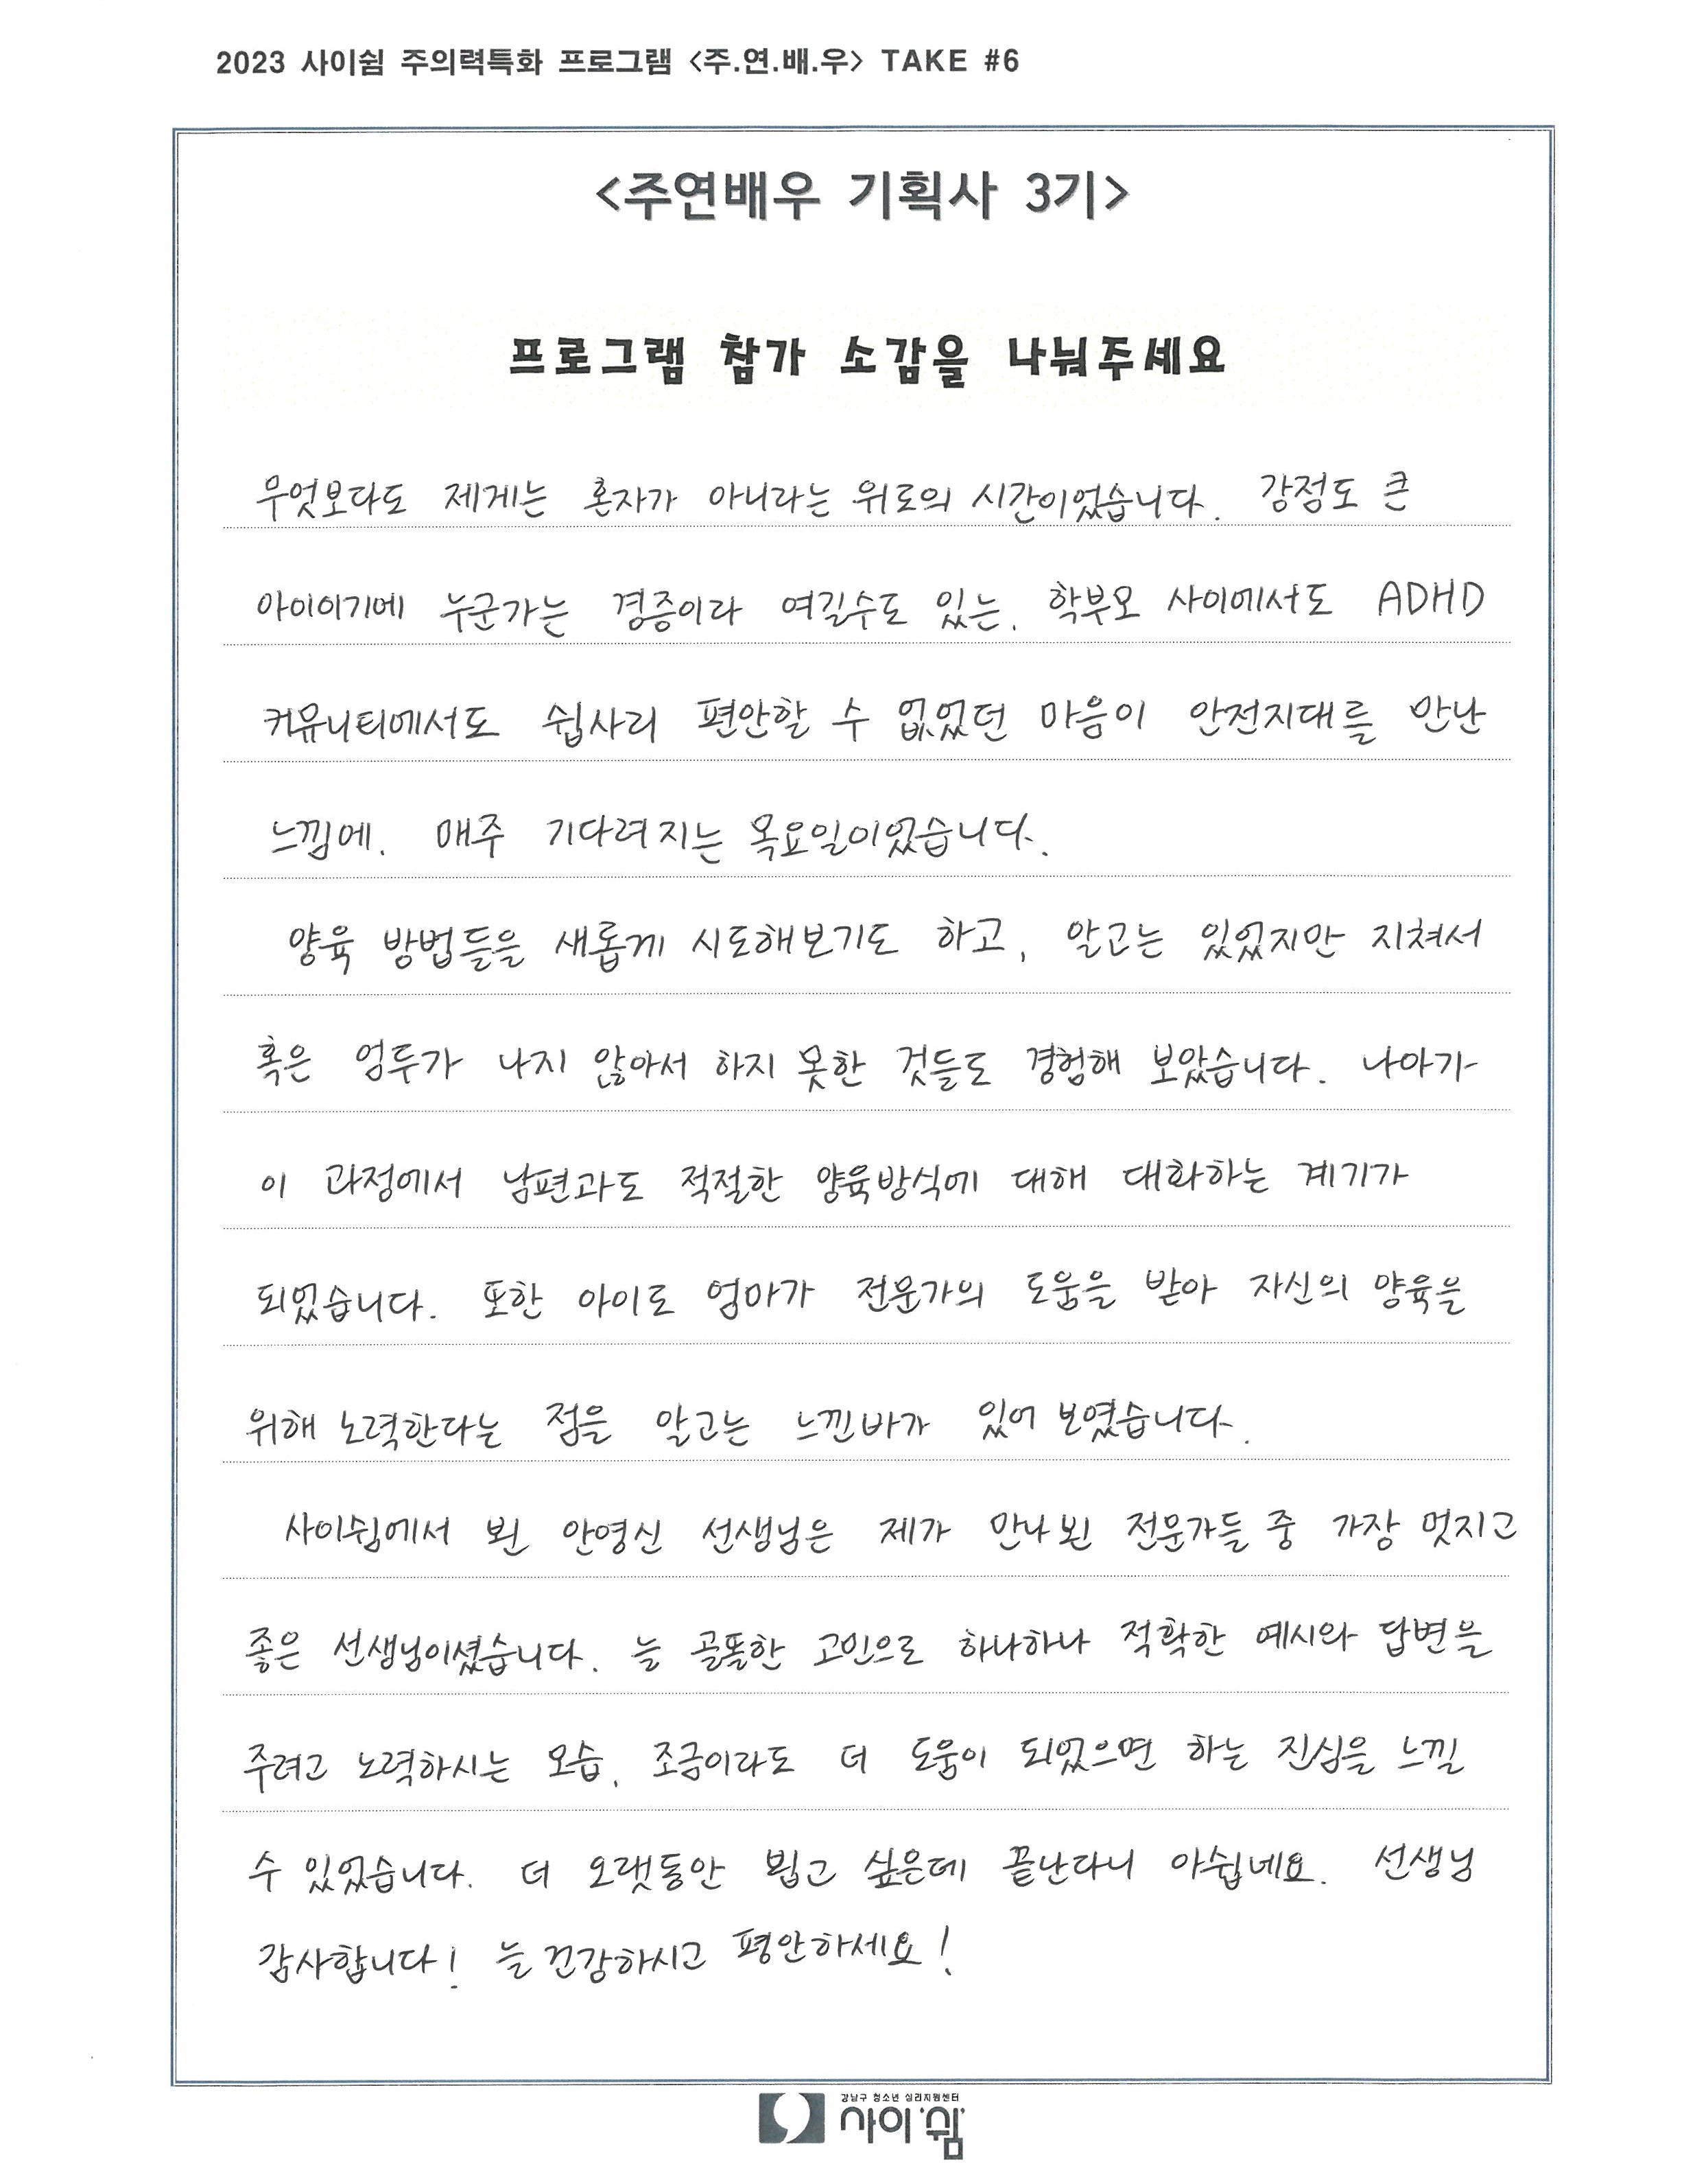 2023 사이쉼 주의력특화 프로그램 <주.연.배.우> TAKE #6
<주연배우 기획사 3기>
프로그램 참가 소감을 나눠주세요
무엇보다도 제게는 혼자가 아니라는 위로의 시간이었습니다. 강점도 큰
아이이기에 누군가는 경증이라 여길수도 있는, 학부모 사이에서도 ADHD
커뮤니티에서도 쉽사리 편안할 수 없었던 마음이 안전지대를 만난
느낌에. 매주 기다려지는 목요일이었습니다.
양육 방법들을 새롭게 시도해보기도 하고, 알고는 있었지만 지쳐서
혹은 엄두가 나지 않아서 하지 못한 것들도 경험해 보았습니다. 나아가
이 과정에서 남편과도 적절한 양육방식에 대해 대화하는 계기가
되었습니다. 또한 아이도 엄마가 전문가의 도움을 받아 자신의 양육을
위해 노력한다는 점을 알고는 느낀바가 있어 보였습니다.
사이쉼에서 뵌 안영신 선생님은 제가 만나뵌 전문가들 중 가장 멋지고
좋은 선생님이셨습니다. 늘 골똘한 고민으로 하나하나 적확한 예시와 답변을
주려고 노력하시는 모습, 조금이라도 더 도움이 되었으면 하는 진심을 느낄
수 있었습니다. 더 오랫동안 뵙고 싶은데 끝난다니 아쉽네요. 선생님
감사합니다! 늘 건강하시고 평안하세요!
강남구 청소년 심리지원센터
사이'쉼'